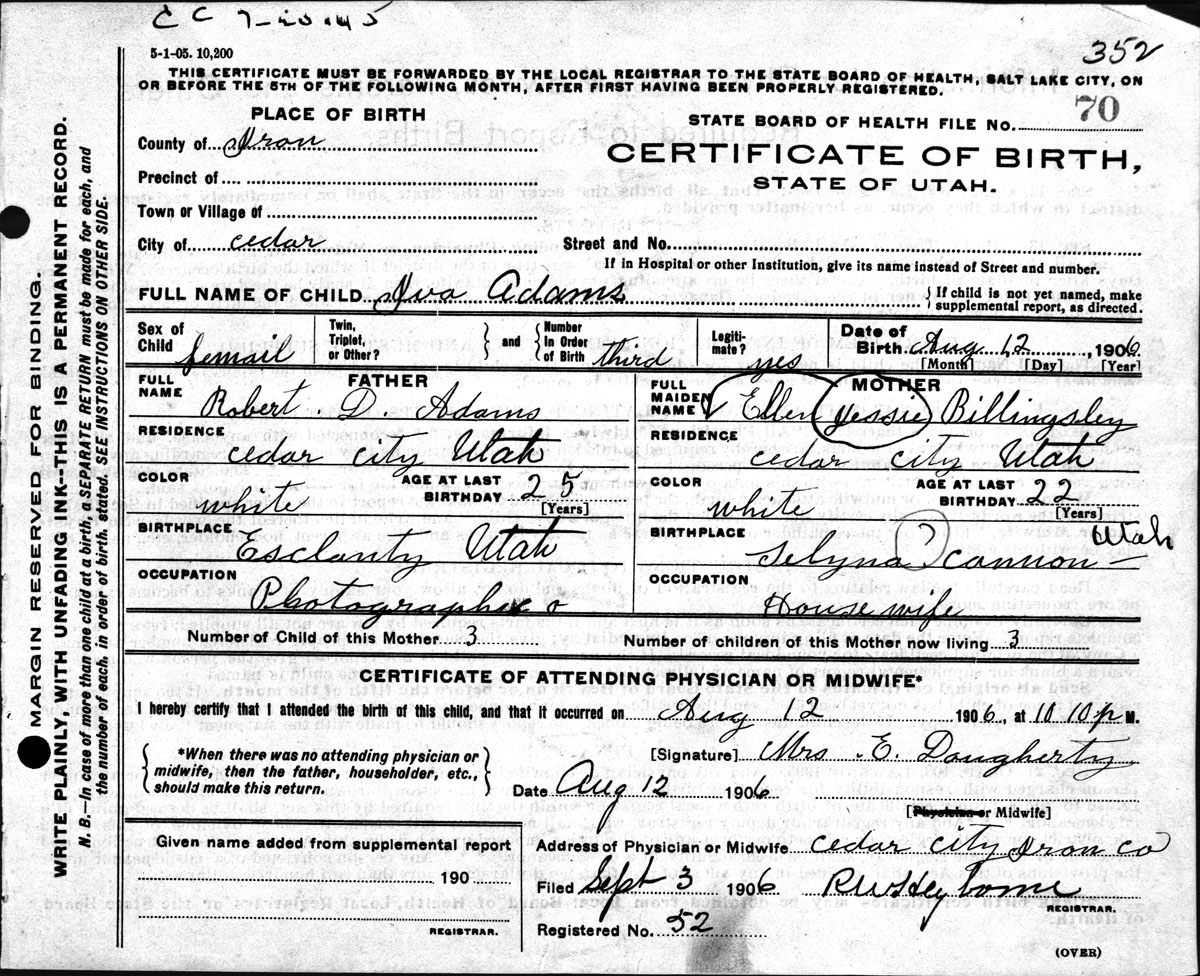 5-1-05. 10,200
352
THIS CERTIFICATE MUST BE FORWARDED BY THE LOCAL REGISTRAR TO THE STATE BOARD OF HEALTH, SALT LAKE CITY, ON
OR BEFORE THE 5TH OF THE FOLLOWING MONTH, AFTER FIRST HAVING BEEN PROPERLY REGISTERED.
PLACE OF BIRTH
STATE BOARD OF HEALTH FILE NO. 70
County of Iron
CERTIFICATE OF BIRTH,
STATE OF UTAH.
Precinct of
Town or Village of
City of cedar
Street and No.
If in Hospital or other Institution, give its name instead of Street and number.
FULL NAME OF CHILD Iva Adams
{ If child is not yet named, make
supplemental report, as directed.
Sex of Child femail
Twin, Triplet, or Other? } and { Number in Order of Birth third
Legitimate? yes
Date of Birth Aug 12, 1906
[Month] [Day] [Year]
FATHER
FULL NAME Robert D. Adams
RESIDENCE
cedar city Utah
COLOR white
AGE AT LAST BIRTHDAY 25
[Years]
BIRTHPLACE
Esclanty Utah
OCCUPATION
Number of Child of this Mother 3
MOTHER
FULL MAIDEN NAME Ellen Jessie Billingsley
RESIDENCE
cedar city Utah
COLOR white
AGE AT LAST BIRTHDAY 22
[Years]
BIRTHPLACE Utah
? cannon
OCCUPATION
House wife
Number of children of this Mother now living 3
CERTIFICATE OF ATTENDING PHYSICIAN OR MIDWIFE*
I hereby certify that I attended the birth of this child, and that it occurred on Aug 12 1906, at 10 10 p M.
{ *When there was no attending physician or
midwife, then the father, householder, etc.,
should make this return. }
[Signature] Mrs. E. Dougherty
Date Aug 12 1906
[Physician or Midwife]
Given name added from supplemental report
190
REGISTRAR.
Address of Physician or Midwife cedar city Iron co
Filed Sept 3 1906
REGISTRAR.
Registered No. 52
(OVER)
MARGIN RESERVED FOR BINDING.
WRITE PLAINLY, WITH UNFADING INK--THIS IS A PERMANENT RECORD.
N. B.--In case of more than one child at a birth, a SEPARATE RETURN must be made for each, and
the number of each, in order of birth, stated. SEE INSTRUCTIONS ON OTHER SIDE.